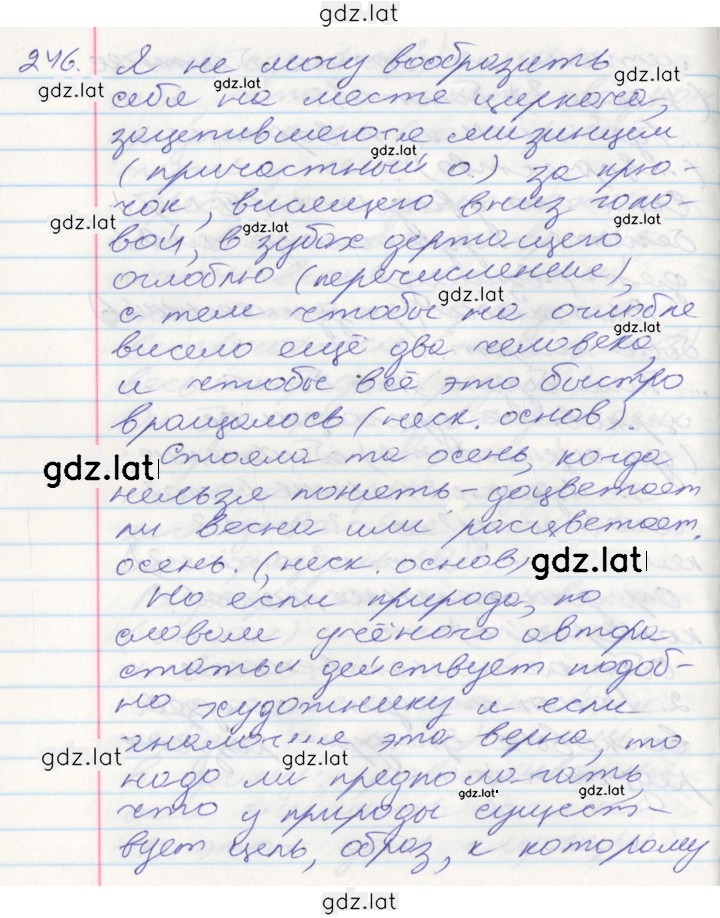 gdz.lat
246. Я не могу вообразить
gdz.lat
gdz.lat
gdz.lat
себя на месте циркача,
зацепившегося мизинцем
gdz.lat
(причастный о.) за крю-
чок, висящего вниз голо-
gdz.lat
gdz.lat
gdz.lat
вой, в зубах держащего
оглоблю (перечисление),
gdz.lat
с тем чтобы на оглобле
gdz.lat
висело ещё два человека,
и чтобы всё это быстро
вращалось (неск. основ).
Стояла та осень, когда
gdz.lat
нельзя понять - доцветает
ли весна или расцветает
осень. (неск. основ)
gdz.lat
Но если природа, по
словам учёного автора
статьи действует подоб-
но художнику и если
аналогия эта верна, то
gdz.lat
gdz.lat
надо ли предполагать,
gdz.lat
gdz.lat
что у природы сущест-
вует цель, образ, к которому
gdz.lat